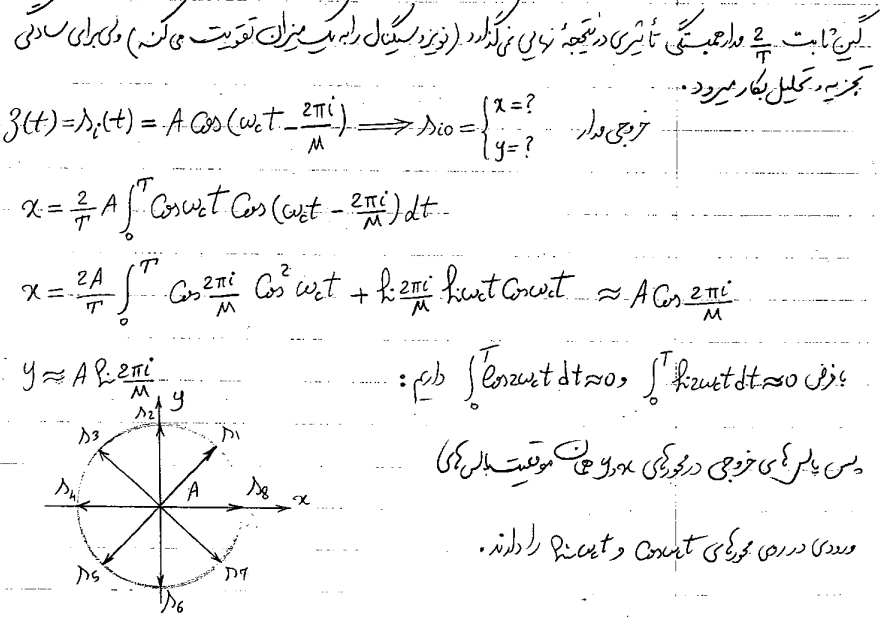 گین ثابت 2/T مدار همبستگی تأثیری در نتیجهٔ نهایی نمی‌گذارد (نویز و سیگنال را به یک میزان تقویت می‌کند) ولی برای سادگی
تجزیه و تحلیل بکار میرود.
z(t) = s_i(t) = A Cos(ω_c t - 2πi/M) ⟹ s_io = { x = ? y = ? خروجی مدار
x = 2/T A ∫_0^T Cos ω_c t Cos(ω_c t - 2πi/M) dt
x = 2A/T ∫_0^T Cos 2πi/M Cos² ω_c t + Sin 2πi/M Sin ω_c t Cos ω_c t ≈ A Cos 2πi/M
با فرض ∫_0^T Sin 2ω_c t dt ≈ 0 و ∫_0^T Cos 2ω_c t dt ≈ 0 داریم: y ≈ A Sin 2πi/M
y
s2
s3 s1
s4 A s8 x
s5 s7
s6
پس پالس‌های خروجی در محورهای x و y همان موقعیت پالس‌های
ورودی در روی محورهای Cos ω_c t و Sin ω_c t را دارند.